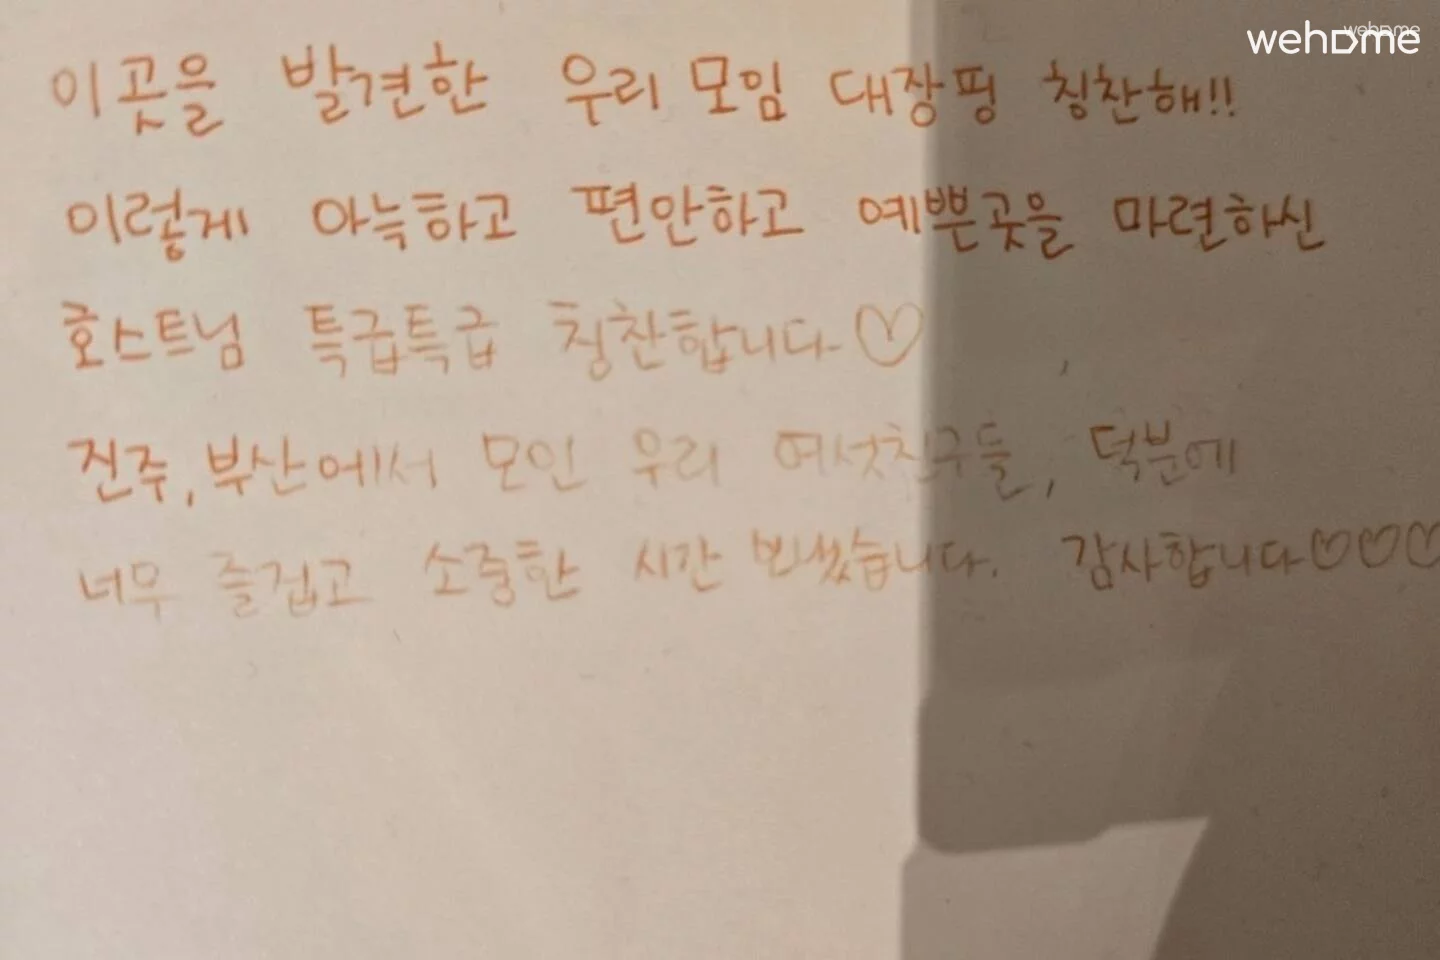 wehome
이곳을 발견한 우리 모임 대장핑 칭찬해!!
이렇게 아늑하고 편안하고 예쁜곳을 마련하신
호스트님 특급특급 칭찬합니다♡
진주, 부산에서 모인 우리 여섯친구들, 덕분에
너무 즐겁고 소중한 시간 보냈습니다. 감사합니다♡♡♡